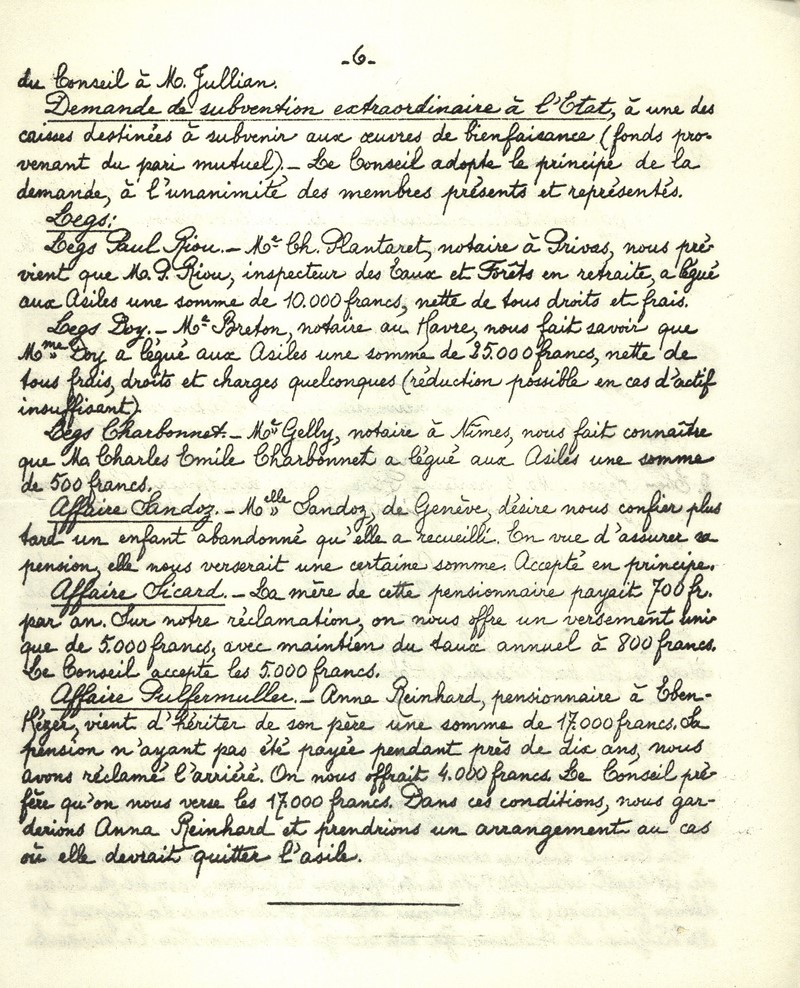 -6-
du Conseil à M. Jullian.
Demande de subvention extraordinaire à l'Etat, à une des
caisses destinées à subvenir aux œuvres de bienfaisance (fonds pro-
venant du pari mutuel). _ Le Conseil adopte le principe de la
demande, à l'unanimité des membres présents et représentés.
Legs:
Legs Paul Riou. _ Me Ch. Plantaret, notaire à Privas, nous pré-
vient que M. P. Riou, inspecteur des Eaux et Forêts en retraite, a légué
aux Asiles une somme de 10.000 francs, nette de tous droits et frais.
Legs Doy. _ Me Breton, notaire au Havre, nous fait savoir que
Mme Doy a légué aux Asiles une somme de 25.000 francs, nette de
tous frais, droits et charges quelconques (réduction possible en cas d'actif
insuffisant).
Legs Charbonnet. _ Me Gelly, notaire à Nîmes, nous fait connaître
que M. Charles Emile Charbonnet a légué aux Asiles une somme
de 500 francs.
Affaire Sandoz. _ Melle Sandoz, de Genève, désire nous confier plus
tard un enfant abandonné qu'elle a recueilli. En vue d'assurer sa
pension, elle nous verserait une certaine somme. Accepté en principe.
Affaire Sicard. _ La mère de cette pensionnaire payait 700 fr.
par an. Sur notre réclamation, on nous offre un versement uni-
que de 5.000 francs, avec maintien du taux annuel à 800 francs.
Le Conseil accepte les 5.000 francs.
Affaire Pulfermuller. _ Anna Reinhard, pensionnaire à Eben-
Hézer, vient d'hériter de son père une somme de 17.000 francs. Sa
pension n'ayant pas été payée pendant près de dix ans, nous
avons réclamé l'arriéré. On nous offrait 4.000 francs. Le Conseil pré-
fère qu'on nous verse les 17.000 francs. Dans ces conditions, nous gar-
derions Anna Reinhard et prendrions un arrangement au cas
où elle devrait quitter l'asile.